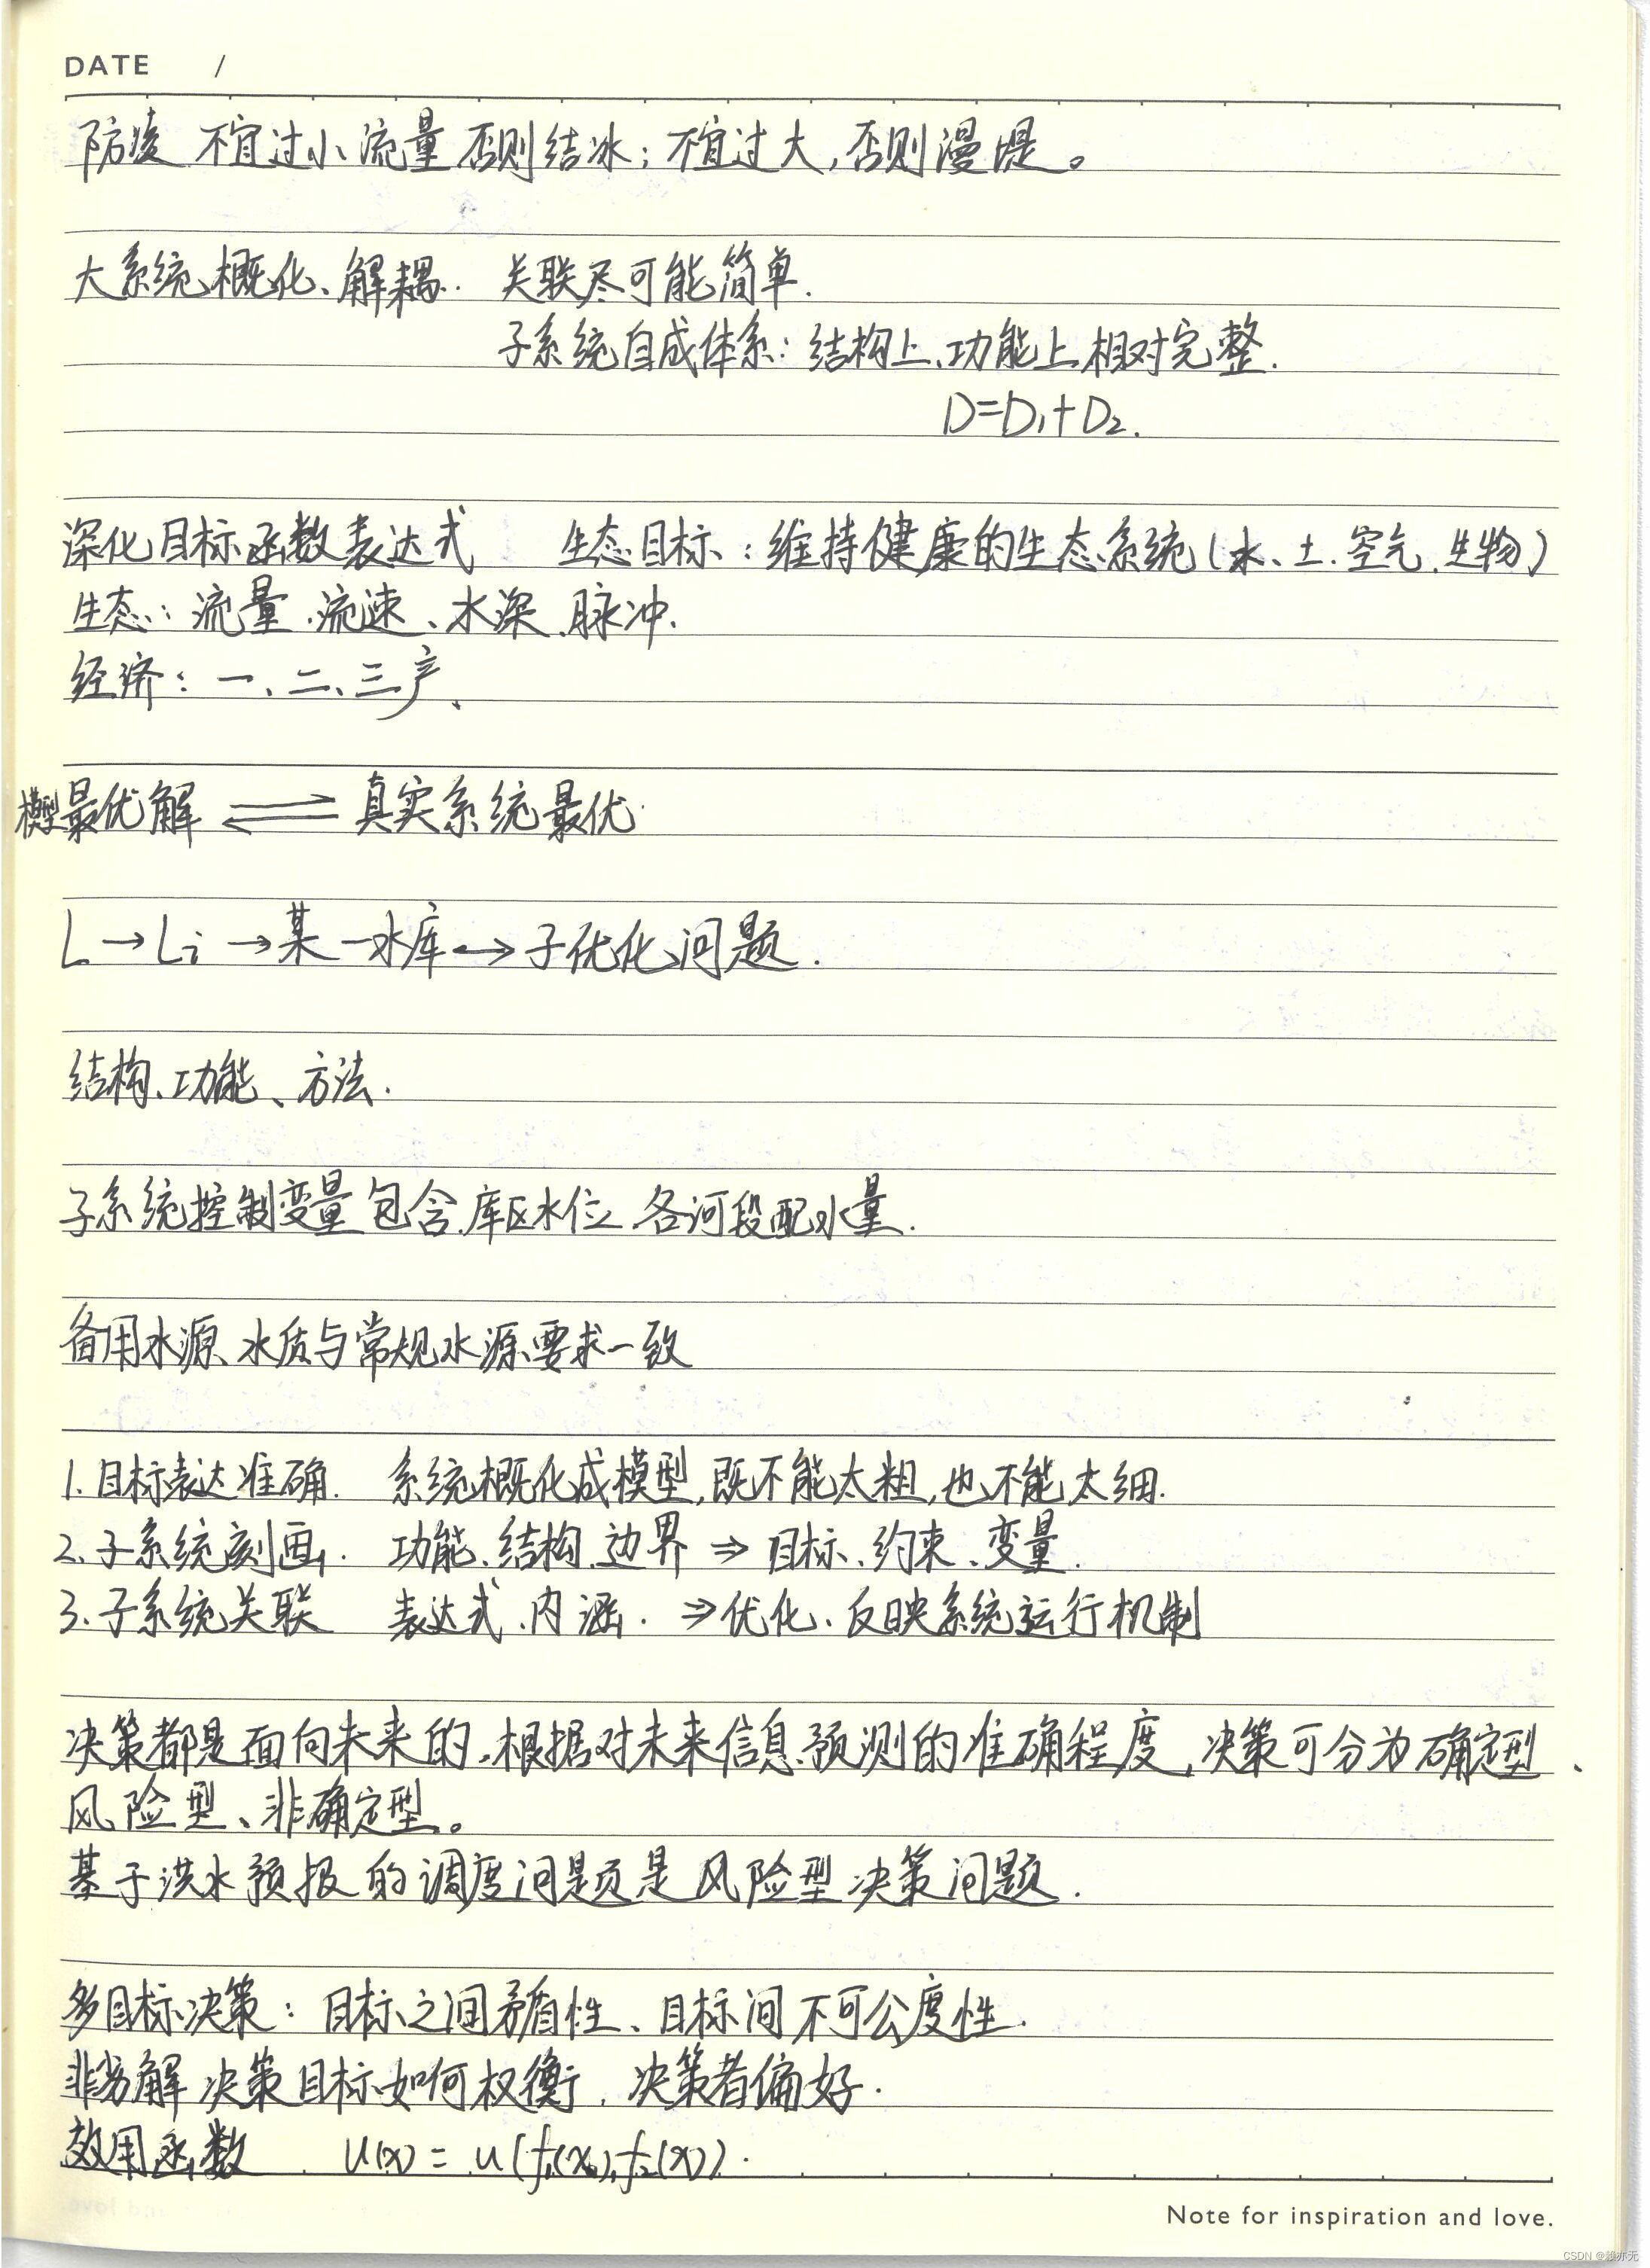 DATE /
防凌 不宜过小流量 否则结冰；不宜过大，否则漫堤。
大系统概化、解耦. 关联尽可能简单.
子系统自成体系：结构上、功能上相对完整.
D=D₁+D₂.
深化目标函数表达式 生态目标：维持健康的生态系统(水、土.空气.生物)
生态：流量.流速、水深.脉冲.
经济：一、二、三产、
模型最优解 ⇌ 真实系统最优.
L→Li→某一水库↔子优化问题.
结构、功能、方法.
子系统控制变量包含.库区水位.各河段配水量.
备用水源、水质与常规水源要求一致
1.目标表达准确. 系统概化成模型,既不能太粗,也不能太细.
2.子系统刻画. 功能、结构.边界 ⇒ 目标、约束、变量.
3.子系统关联 表达式、内涵. ⇒优化、反映系统运行机制
决策都是面向未来的,根据对未来信息预测的准确程度,决策可分为确定型、
风险型、非确定型。
基于洪水预报的调度问题是风险型决策问题.
多目标决策：目标之间矛盾性、目标间不可公度性.
非劣解 决策目标如何权衡,决策者偏好.
效用函数 u(x)=u(f₁(x),f₂(x)).
Note for inspiration and love.
CSDN @赖亦无